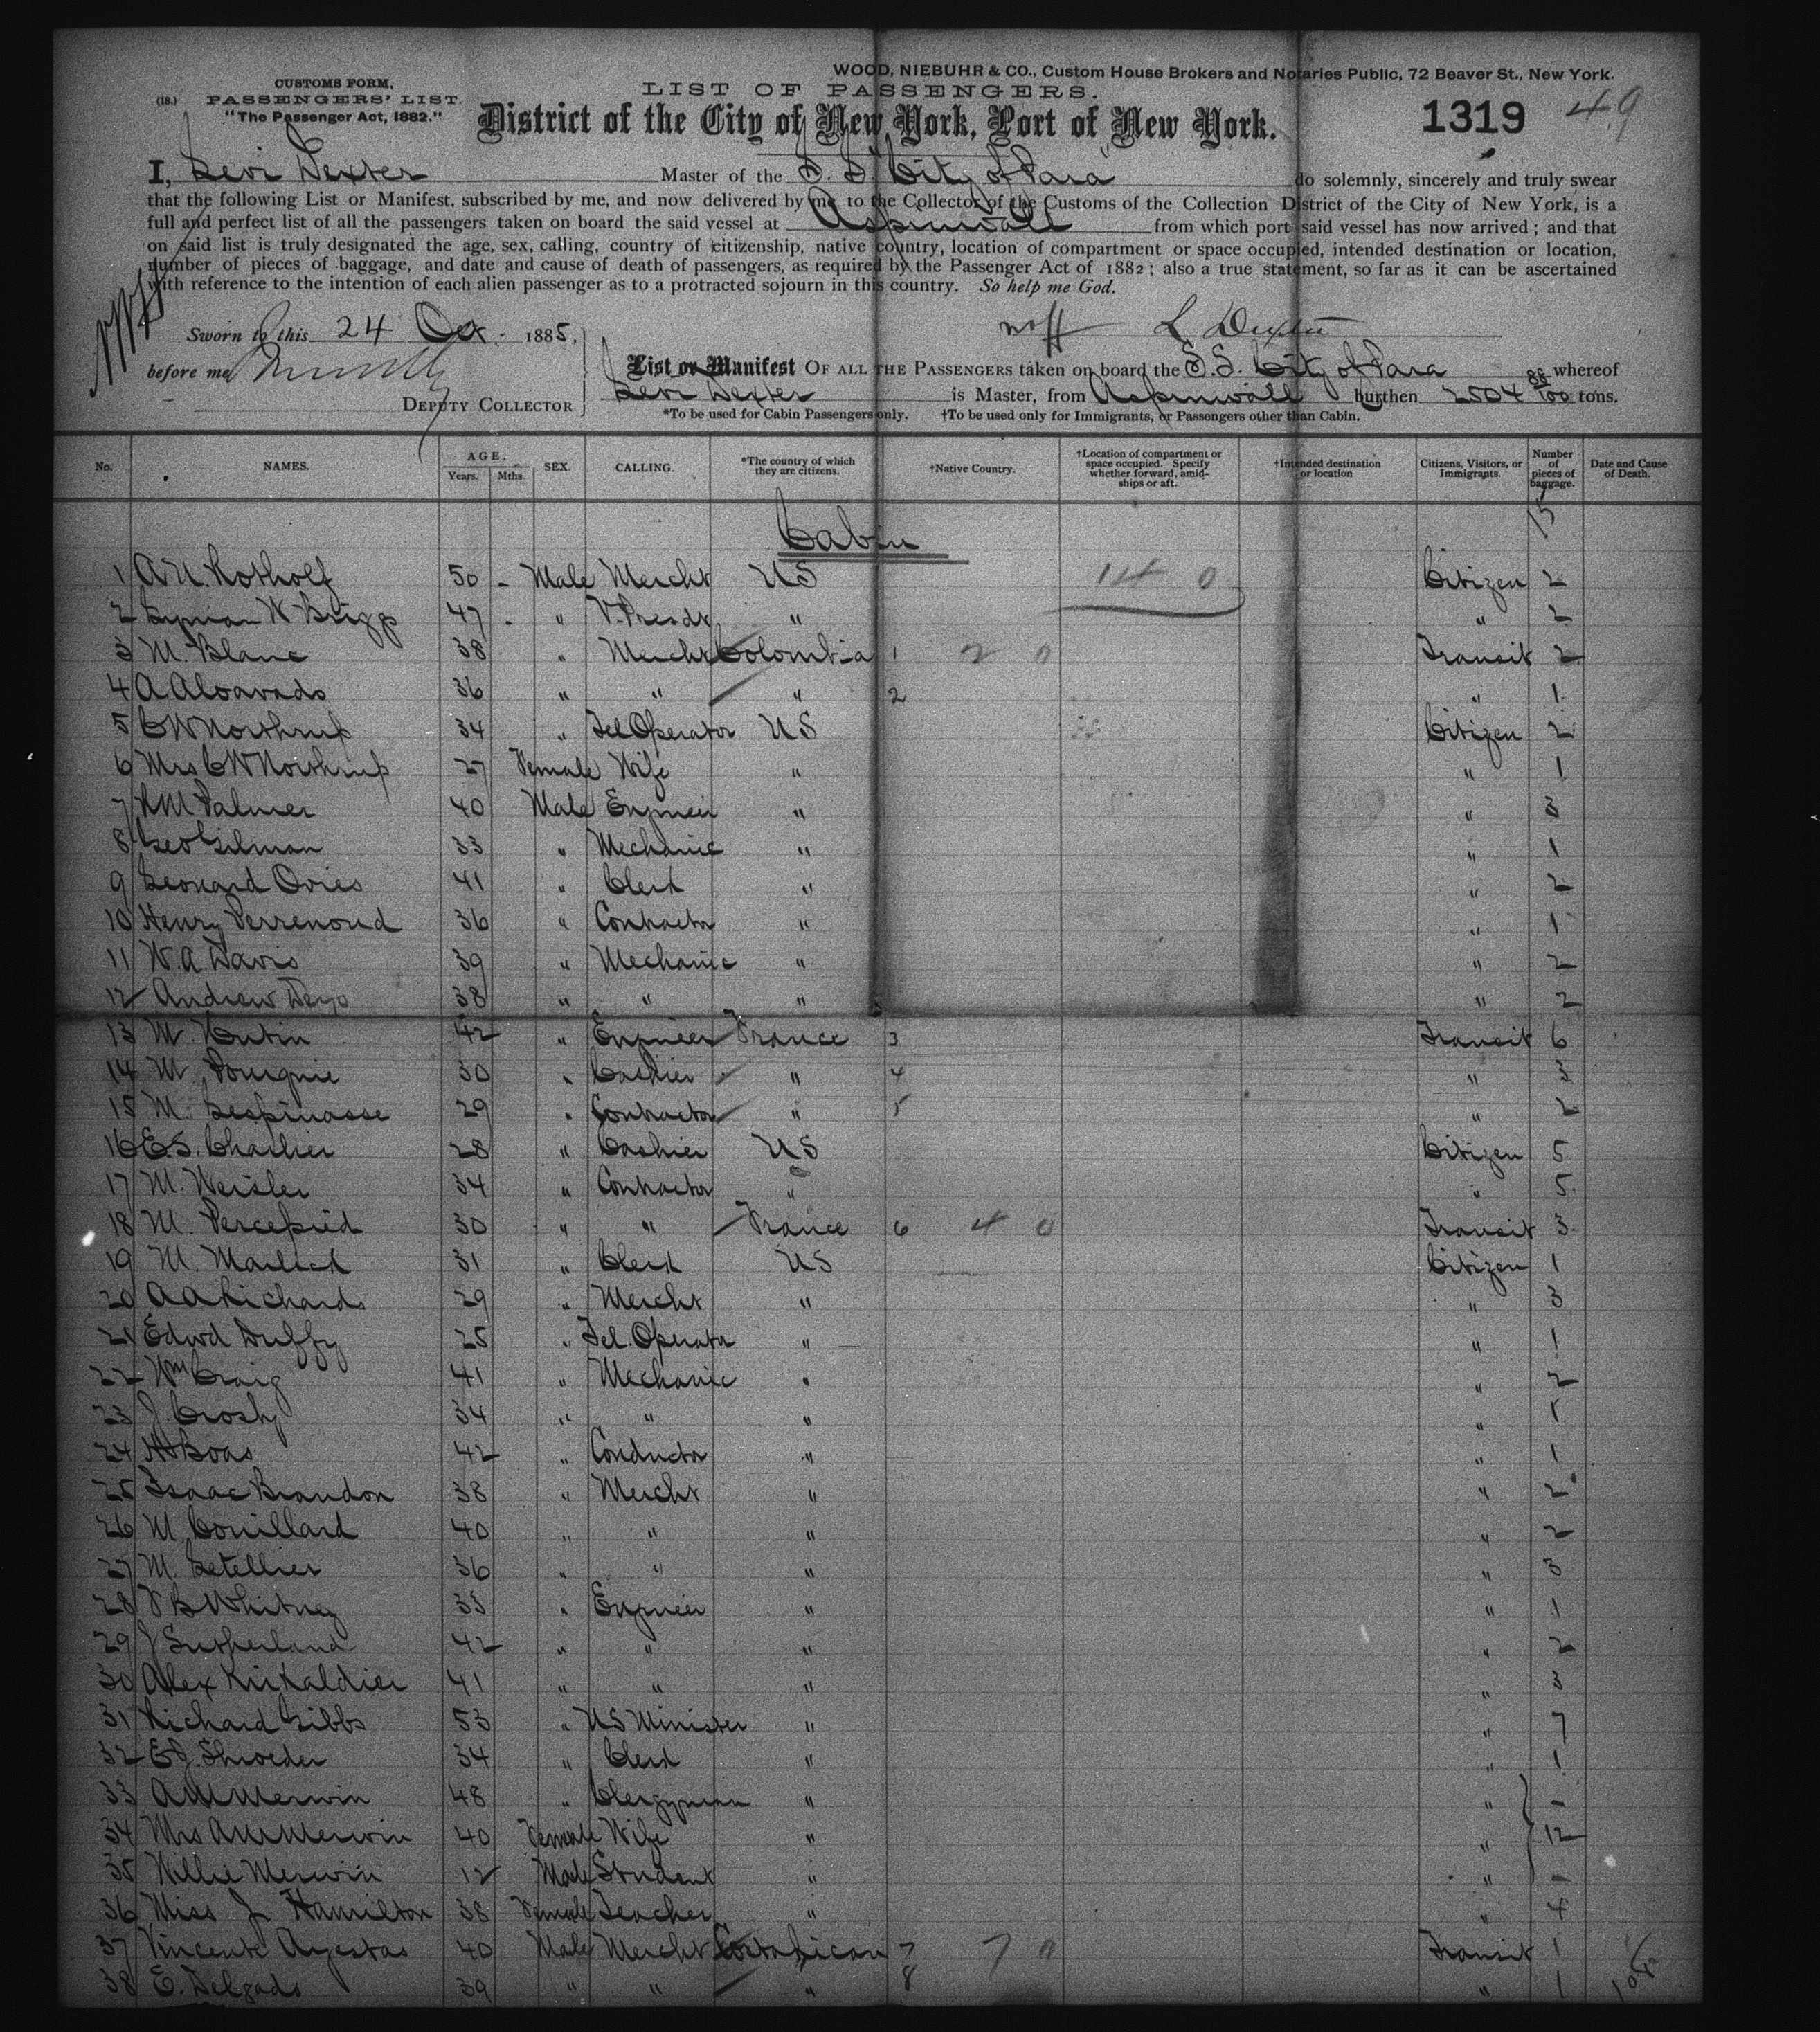 WOOD, NIEBUHR & CO., Custom House Brokers and Notaries Public, 72 Beaver St., New York.
CUSTOMS FORM,
(18.) PASSENGERS' LIST.
"The Passenger Act, 1882."
LIST OF PASSENGERS.
District of the City of New York, Port of New York.
1319 49
I, Levi Dexter Master of the S. S. "City of Para" do solemnly, sincerely and truly swear
that the following List or Manifest, subscribed by me, and now delivered by me to the Collector of the Customs of the Collection District of the City of New York, is a
full and perfect list of all the passengers taken on board the said vessel at Aspinwall from which port said vessel has now arrived; and that
on said list is truly designated the age, sex, calling, country of citizenship, native country, location of compartment or space occupied, intended destination or location,
number of pieces of baggage, and date and cause of death of passengers, as required by the Passenger Act of 1882; also a true statement, so far as it can be ascertained
with reference to the intention of each alien passenger as to a protracted sojourn in this country. So help me God.
Sworn to this 24 Oct. 1885,
L Dexter
before me
DEPUTY COLLECTOR
List or Manifest OF ALL THE PASSENGERS taken on board the S.S. City of Para whereof
Levi Dexter is Master, from Aspinwall burthen 2504 88/100 tons.
*To be used for Cabin Passengers only. †To be used only for Immigrants, or Passengers other than Cabin.
No. NAMES. AGE. Years. Mths. SEX. CALLING. *The country of which they are citizens. †Native Country. †Location of compartment or space occupied. Specify whether forward, amidships or aft. †Intended destination or location Citizens, Visitors, or Immigrants. Number of pieces of baggage. Date and Cause of Death.
Cabin
1 A U. Rotholf 50 - Male Mercht US 14 0 Citizen 2
2 Lyman W Briggs 47 " V. Presdt " " 2
3 M. Blanc 38 " Mercht Colombia 1 2 0 Transit 2
4 A Alvarado 36 " " " 2 " 1
5 C W Northrup 34 " Tel Operator US Citizen 2
6 Mrs C W Northrup 27 Female Wife " " 1
7 R M Palmer 40 Male Engineer " " 3
8 Geo Gilman 33 " Mechanic " " 1
9 Leonard Ovies 41 " Clerk " " 2
10 Henry Perrenoud 36 " Contractor " " 1
11 W. A. Davis 39 " Mechanic " " 2
12 Andrew Deyo 38 " " " " 2
13 M. Hutin 42 " Engineer France 3 Transit 6
14 M. Pourquie 30 " Cashier " 4 " 3
15 M. Lespinasse 29 " Contractor " 5 " 2
16 E. S. Charlier 28 " Cashier US Citizen 5
17 M. Weisler 34 " Contractor " " 5
18 M. Percepied 30 " " France 6 4 0 Transit 3
19 M. Marlick 31 " Clerk US Citizen 1
20 A A Richards 29 " Mercht " " 3
21 Edwd Duffy 25 " Tel. Operator " " 1
22 Wm Craig 41 " Mechanic " " 2
23 J. Crosby 34 " " " " 1
24 H Boas 42 " Conductor " " 1
25 Isaac Brandon 38 " Mercht " " 2
26 M. Couillard 40 " " " " 2
27 M. Letellier 36 " " " " 3
28 F B Whitney 35 " Engineer " " 1
29 J Sutherland 42 " " " " 2
30 Alex Kirkaldier 41 " " " " 3
31 Richard Gibbs 53 " US Minister " " 7
32 E J. Shroeder 34 " Clerk " " 1
33 A M Merwin 48 " Clergyman " " -
34 Mrs A M Merwin 40 Female Wife " " 12
35 Willie Merwin 12 Male Student " " -
36 Miss J Hamilton 38 Female Teacher " " 4
37 Vincente Ayestas 40 Male Mercht Costa Rican 7 7 0 Transit 1
38 E. Delgado 39 " " " 8 " 1